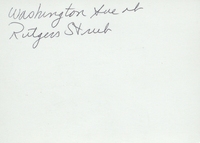 Washington Ave at
Rutgers Street